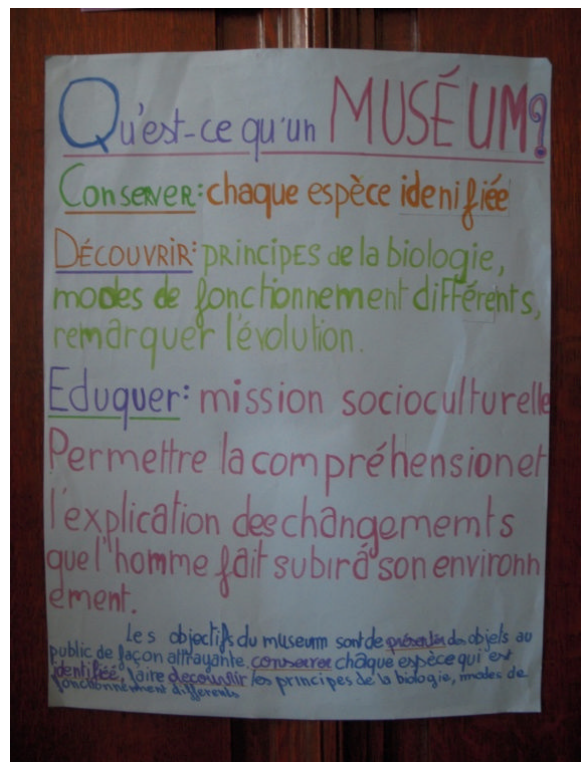 Qu'est-ce qu'un MUSÉUM?
Conserver: chaque espèce idenifiée
DÉCOUVRIR: PRINCIPES de la biologie,
modes de fonctionnement différents,
remarquer l'évolution.
Eduquer: mission socioculturelle
Permettre la compréhension et
l'explication des changememts
que l'homme fait subir à son environn
ement.
Les objectifs du museum sont de présenter des objets au
public de façon attrayante, conserver chaque espèce qui est
identifiée, faire découvrir les principes de la biologie, modes de
fonctionnement differents